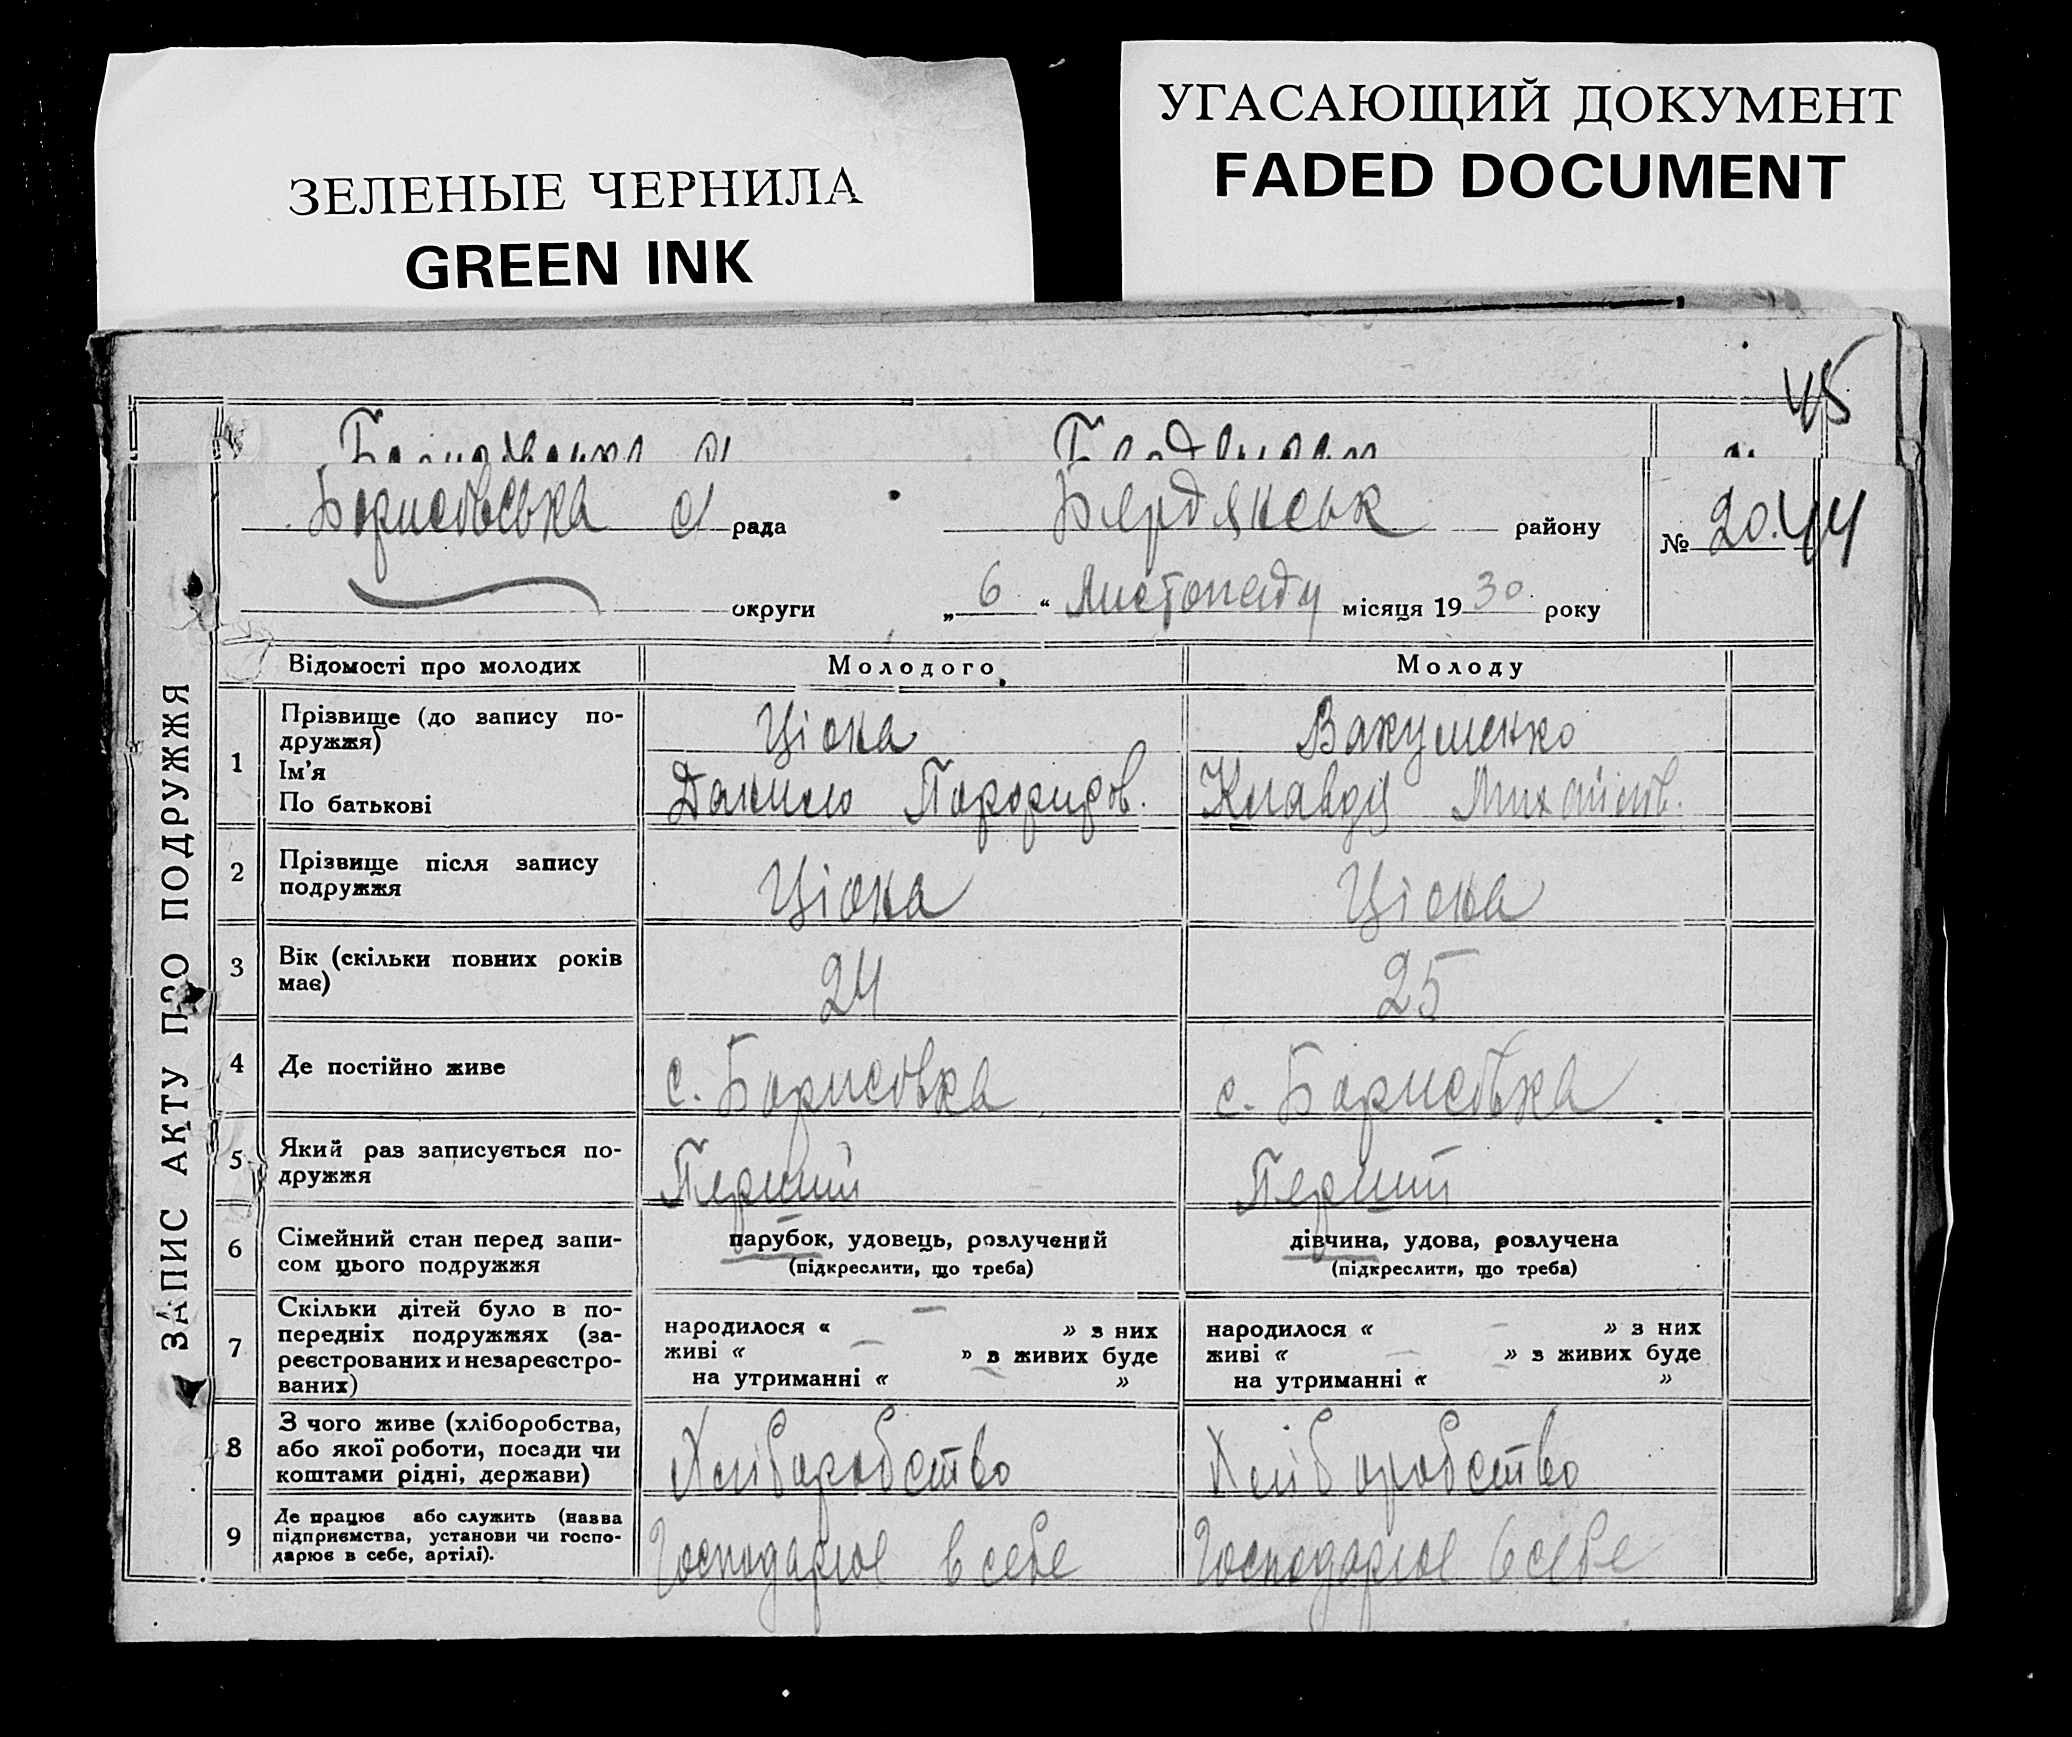 ЗЕЛЕНЫЕ ЧЕРНИЛА
GREEN INK
УГАСАЮЩИЙ ДОКУМЕНТ
FADED DOCUMENT
45
Борисовська с/ рада Бердянськ району № 20. 44
округи „ 6 “ Листопаду місяця 19 30 року
ЗАПИС АКТУ ПРО ПОДРУЖЖЯ
Відомості про молодих Молодого Молоду
1 Прізвище (до запису по-
дружжя) Ціона Вакуменко
Ім’я
По батькові Данило Порфиров. Клавдія Михайлів.
2 Прізвище після запису
подружжя Ціона Ціона
3 Вік (скільки повних років
має) 24 25
4 Де постійно живе с. Борисовка с. Борисовка
5 Який раз записується по-
дружжя Перший Перший
6 Сімейний стан перед запи-
сом цього подружжя
парубок, удовець, розлучений дівчина, удова, розлучена
(підкреслити, що треба) (підкреслити, що треба)
7 Скільки дітей було в по-
передніх подружжях (за-
реєстрованих и незареєстро-
ваних)
народилося « — » з них народилося « — » з них
живі « — » з живих буде живі « — » з живих буде
на утриманні « — » на утриманні « — »
8 З чого живе (хліборобства,
або якої роботи, посади чи
коштами рідні, держави) Хліборобство Хліборобство
9 Де працює або служить (назва
підприємства, установи чи госпо-
дарює в себе, артілі). Господарює в себе Господарює в себе